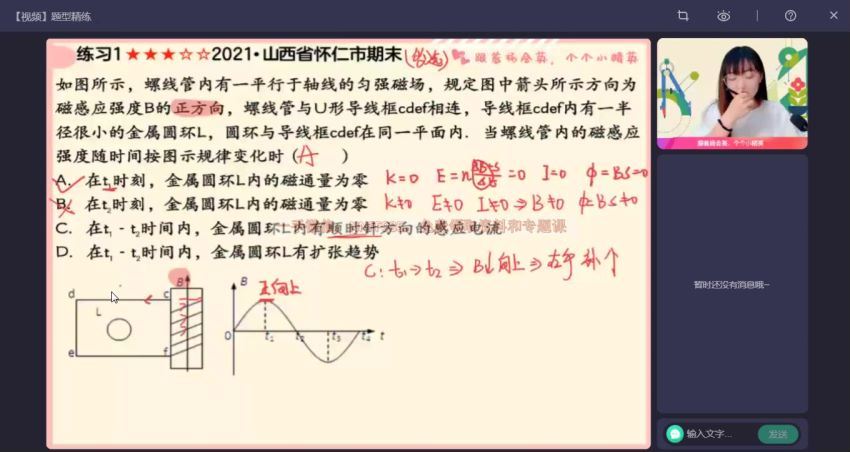 【视频】题型精练
练习1★★★☆☆2021·山西省怀仁市期末
跟着杨会英，个个小精英
如图所示，螺线管内有一平行于轴线的匀强磁场，规定图中箭头所示方向为
磁感应强度B的正方向，螺线管与U形导线框cdef相连，导线框cdef内有一半
径很小的金属圆环L，圆环与导线框cdef在同一平面内．当螺线管内的磁感应
强度随时间按图示规律变化时（ A ）
A．在t₁时刻，金属圆环L内的磁通量为零 K=0 E=n =0 I=0 Φ=BS=0
B．在t₂时刻，金属圆环L内的磁通量为零 K≠0 E≠0 I≠0⇒B≠0 Φ=BS≠0
C．在t₁－t₂时间内，金属圆环L内有顺时针方向的感应电流
D．在t₁－t₂时间内，金属圆环L有扩张趋势
C: t₁→t₂ ⇒ B↓向上⇒右手
B B 正向上
d c
L
O t₁ t₂ t₃ t₄ t
e f
暂时还没有消息哦~
输入文字... 发送